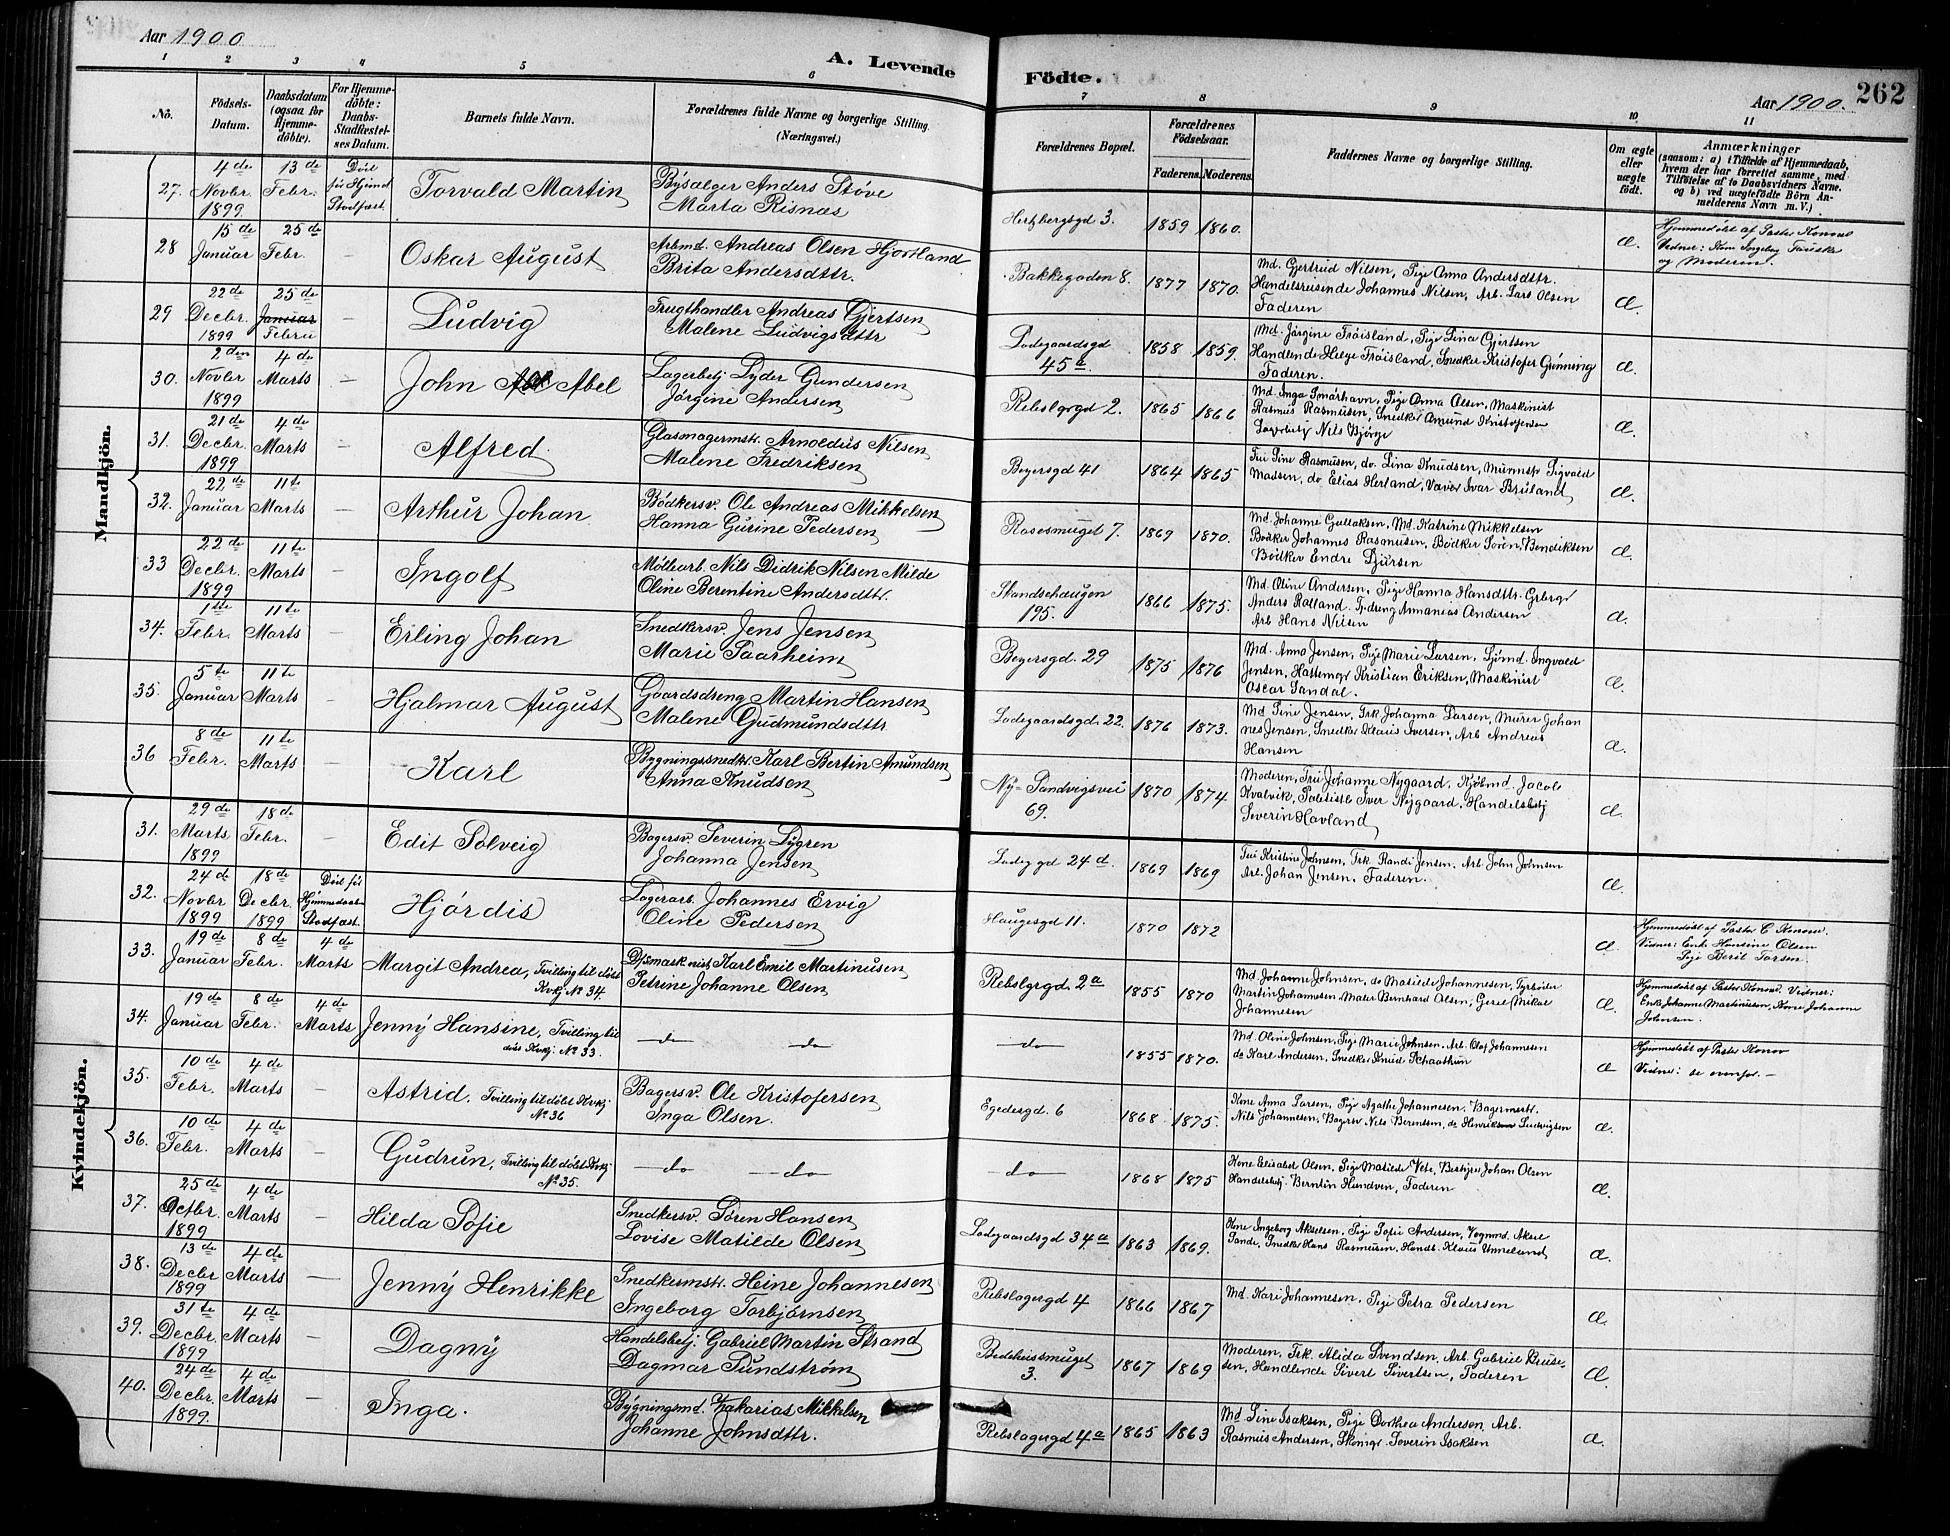 Aar 1900
A. Levende
Födte.
Aar 1900.
262
1 2 3 4 5 6 7 8 9 10 11
No.
Födsels-
Datum.
Daabsdatum
(ogsaa for
Hjemme-
döbte).
For Hjemme-
döbte:
Daabs-
Stadfæstel-
ses Datum.
Barnets fulde Navn.
Forældrenes fulde Navne og borgerlige Stilling.
(Næringsvei.)
Forældrenes Bopæl.
Forældrenes
Födselsaar.
Faderens. Moderens.
Faddernes Navne og borgerlige Stilling.
Om ægte
eller
uægte
födt.
Anmærkninger
(saasom: a) i Tilfælde af Hjemmedaab,
hvem der har forrettet samme, med
Tilföielse af to Daabsvidners Navne,
og b) ved uægtefödte Börn An-
melderens Navn m. V.)
Mandkjön.
27. 4de Novbr. 1899 13de Febr.
Torvald Martin
Anders Støve
Marta Risnæs
Hertzbergsgd 3. 1859 1860. æ.
Hjemmedøbt af Pastor Konow
og Moderen.
28 15de Januar 25de Febr. —
Oskar August
Arbmd. Andreas Olsen Hjortland
Brita Andersdttr.
Bakkegaden 8. 1877 1870.
Md. Gjertrud Nilsen, Pige Anna Andersdttr.
Handelsreisende Johannes Nilsen, Arb. Lars Olsen
Faderen æ.
29 22de Decbr. 1899 25de Januar Februar —
Ludvig
Frugthandler Andreas Gjertsen
Malene Ludvigsdttr
Ladegaardsgd 45a 1858 1859.
Md. Jørgine Frøisland, Pige Lina Gjertsen
Handlende Helge Frøisland, Snedker Kristofer Grønning
Faderen. æ.
30. 2den Novbr 1899 4de Marts —
John Abel
Lagerbetj Lyder Gundersen
Jørgine Andersen
Rebslgrgd 2. 1865 1866
Md. Inga Smørhavn, Pige Anna Olsen, Maskinist
Rasmus Rasmussen, Snedker Amund Kristofersen
Lagerbetj Nils Bjørge æ.
31. 21de Decbr. 1899 4de Marts —
Alfred.
Glasmagermstr. Arnoldus Nilsen
Malene Fredriksen
Beyersgd 41 1864 1865
Fru Sine Rasmusen, do. Lina Knudsen, Sigvald
Madsen, do Elias Herland, Væver Ivar Bruland æ.
32. 22de Januar 11te Marts —
Arthur Johan
Bödkersv. Ole Andreas Mikkelsen
Hanna Gurine Pedersen
Rosesmuget 7. 1869 1870.
Md. Johanne Gullaksen, Md. Katrine Mikkelsen
Bödker Johannes Rasmusen, Bödker Søren Bendiksen
Bödker Endre Djursen æ.
33 22de Decbr. 1899 11te Marts —
Ingolf
Møllearb. Nils Didrik Nilsen Milde
Oline Berentine Andersdttr.
Skandsehaugen 195. 1866 1875.
Md. Oline Andersen, Pige Hanna Hansdttr.
Anders Rolland. Ananias Andersen
Arb Hans Nilsen æ.
34. 1ste Febr. 11te Marts —
Erling Johan
Snedkersv. Jens Jensen
Marie Saarheim
Beyersgd. 29 1875 1876
Md. Anna Jensen, Pige Marie Larsen, Sjømd. Ingvald
Jensen, Hattemgr Kristian Eriksen, Maskinist
Oscar Sandal. æ.
35. 5te Januar 11te Marts —
Hjalmar August
Gaardsdreng Martin Hansen
Malene Gudmundsdttr
Ladegaardsgd. 22. 1876 1873.
Md Sine Jensen, Frk Johanna Larsen, Murer Johan
nes Jensen, Snedker Klaus Iversen, Arb Andreas
Hansen æ.
36 8de Febr. 11te Marts —
Karl
Bygningssnedkr. Karl Bertin Amundsen
Anna Knudsen
Ny-Sandvigsvei 69. 1870 1874
Moderen, Fru Johanne Nygaard, Kjøbmd. Jacob
Kvalvik, Politistb Iver Nygaard, Handelsbetj
Severin Havland æ.
Kvindekjön.
31. 29de Marts 1899 18de Febr. —
Edit Solveig
Bagersv. Severin Lygren
Johanna Jensen
Ladeg gd 24d. 1869 1869
Fru Kristine Johnsen, Frk. Randi Jensen, Arb. John Johnsen
Arb. Johan Jensen. Faderen. æ.
32. 24de Novbr 1899 18de Decbr. 1899
Hjørdis
Lagerarb. Johannes Ervig
Oline Pedersen
Haugesgd 11. 1870 1872 æ.
Hjemmedøbt af Pastor C Konow.
Vidner: Enke Hansine Olsen
Pige Berit Torsen.
33. 19de Januar 8de Febr. 4de Marts
Margit Andrea, Tvilling til døbt
Kvkj. No 34.
Dpsmaskinist Karl Emil Martinusen
Petrine Johanne Olsen
Rebslgrgd. 2a 1855 1870
Md. Johanne Johnsen, do Matilde Johannesen, Fyrbøter
Martin Johannesen Maler Bernhard Olsen, Mikal
Johannesen æ.
Hjemmedøbt af Pastor Konow. Vidner:
Enke Johanne Martinusen, Kone Johanne
Johnsen.
34. 19de Januar 8de Febr. 4de Marts
Jenny Hansine, Tvilling til
døbt Kvkj. No 33.
—do— —do—
—do— 1855 1870.
Md. Oline Johnsen, Pige Marie Johnsen, Arb. Olaf Johannesen
do Karl Andersen, Snedker Knud Schaathun æ
Hjemmedøbt af Pastor Konow
Vidner: se ovenfor. —
35. 10de Febr. 4de Marts —
Astrid. Tvilling til døbt Kvkj
No 36
Bagersv. Ole Kristofersen
Inga Olsen.
Egedesgd. 6 1868 1875.
Kone Anna Larsen, Pige Agathe Johannesen, Bagermestr.
Nils Johannesen, Bagersv Nils Berentsen, do Henrik Ludvigsen æ.
36. 10de Febr. 4de Marts —
Gudrun, Tvilling til døbt Kvkj
No 35.
—do— —do—
—do— 1868 1875
Kone Elisabet Olsen, Pige Matilde Vetr, Johan Olsen
Handelsbetj. Berntin Hundven, Faderen æ.
37. 25de Octbr. 1899 4de Marts —
Hilda Sofie
Snedkersv. Søren Hansen
Lovise Matilde Olsen
Ladegaardsgd 34a 1863 1869.
Kone Ingeborg Akselsen, Pige Sofie Andersen, Vognmd. Aksel
Sande, Snedker Hans Rasmusen, Handb. Klaus Unneland æ.
38. 13de Decbr 1899 4de Marts —
Jenny Henrikke
Snedkermstr. Heine Johannesen
Ingeborg Torbjørnsen
Rebslagergd 4 1866 1867
Md. Kari Johannesen, Pige Petra Pedersen æ.
39. 31te Decbr. 1899 4de Marts —
Dagny
Handelsbetj. Gabriel Martin Strand
Dagmar Sundstrøm
Bedehussmuget 3. 1867 1869
Moderen, Frk. Alida Svendsen, Arb. Gabriel
sen, Handlende Sivert Sivertsen, Faderen æ.
40. 24de Decbr. 1899. 4de Marts —
Inga.
Bygningsmd. Zakarias Mikkelsen
Johanne Johnsdttr.
Rebslagergd 4a 1865 1863
Md Sine Isaksen, Pige Dorthea Andersen, Arb.
Rasmus Andersen, Skomgr. Severin Isaksen æ.